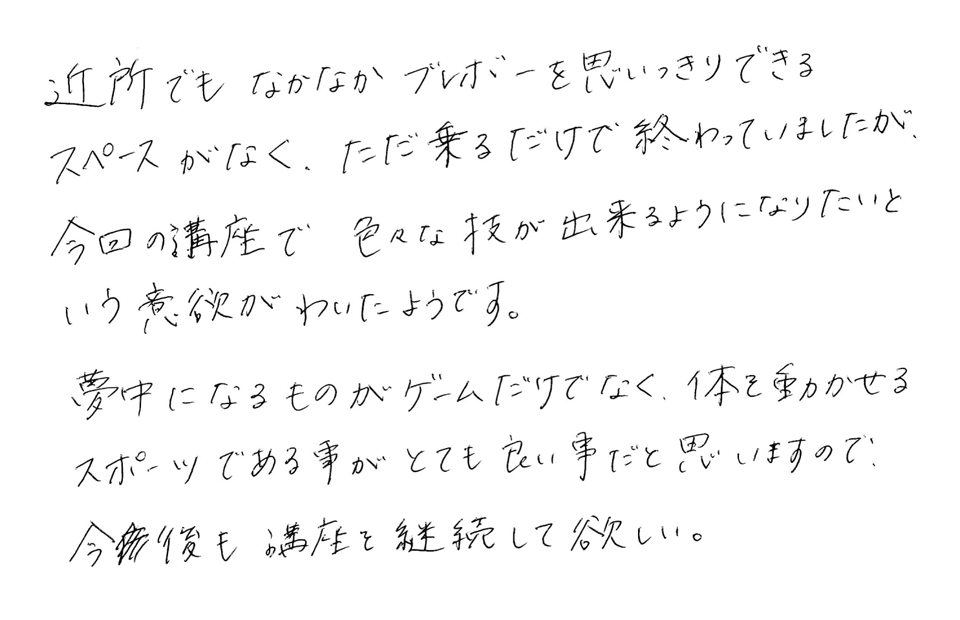 近所でもなかなかブレボーを思いっきりできる
スペースがなく、ただ乗るだけで終わっていましたが、
今回の講座で色々な技が出来るようになりたいと
いう意欲がわいたようです。
夢中になるものがゲームだけでなく、体を動かせる
スポーツである事がとても良い事だと思いますので、
今後も講座を継続して欲しい。